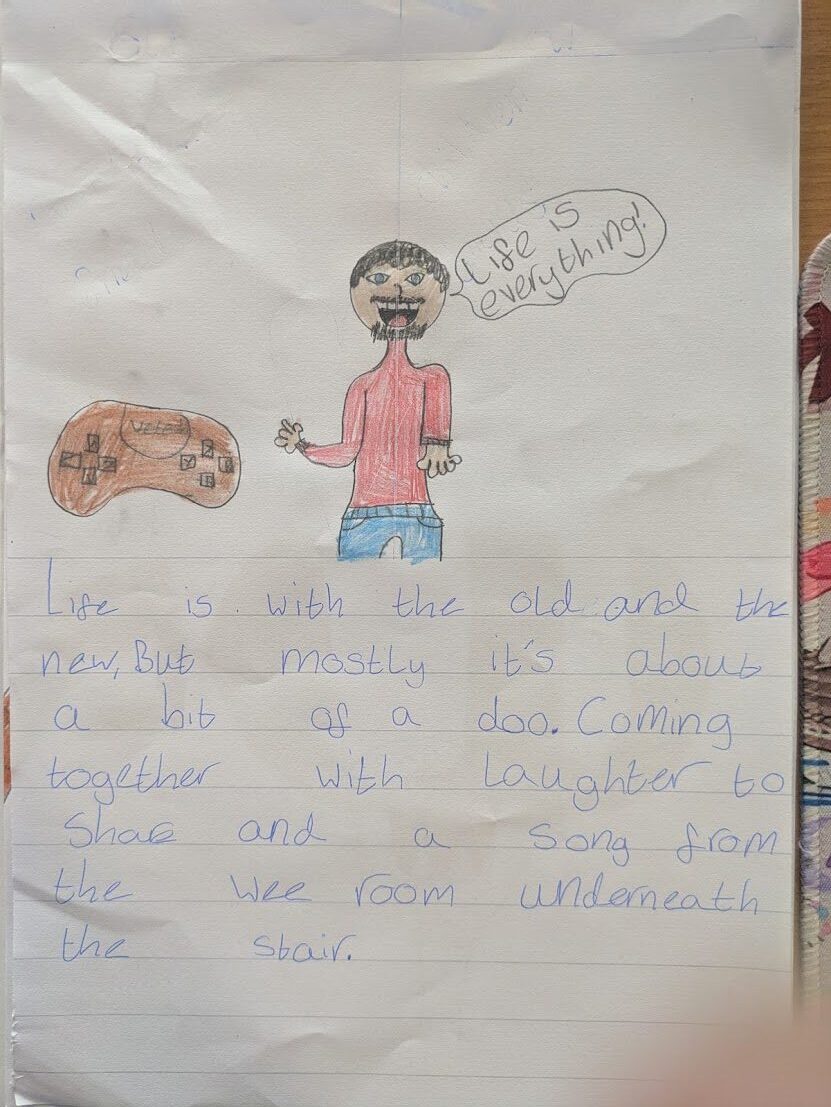 Life is
everything!
Life is with the old and the
new, But mostly it's about
a bit of a doo. Coming
together with laughter to
Share and a song from
the wee room underneath
the stair.